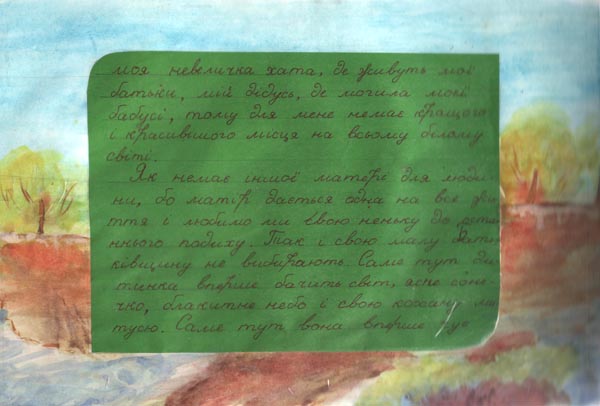 моя невеличка хата, де живуть мої
батьки, мій дідусь, де могила моєї
бабусі, тому для мене немає кращого
і красивішого місця на всьому білому
світі.
Як немає іншої матері для люди
ни, бо матір дається одна на все жи
ття і любимо ми свою неньку до остан
нього подиху. Так і свою малу бать
ківщину не вибирають. Саме тут ди
тинка вперше бачить світ, ясне соне
чко, блакитне небо і свою кохану ма
тусю. Саме тут вона вперше